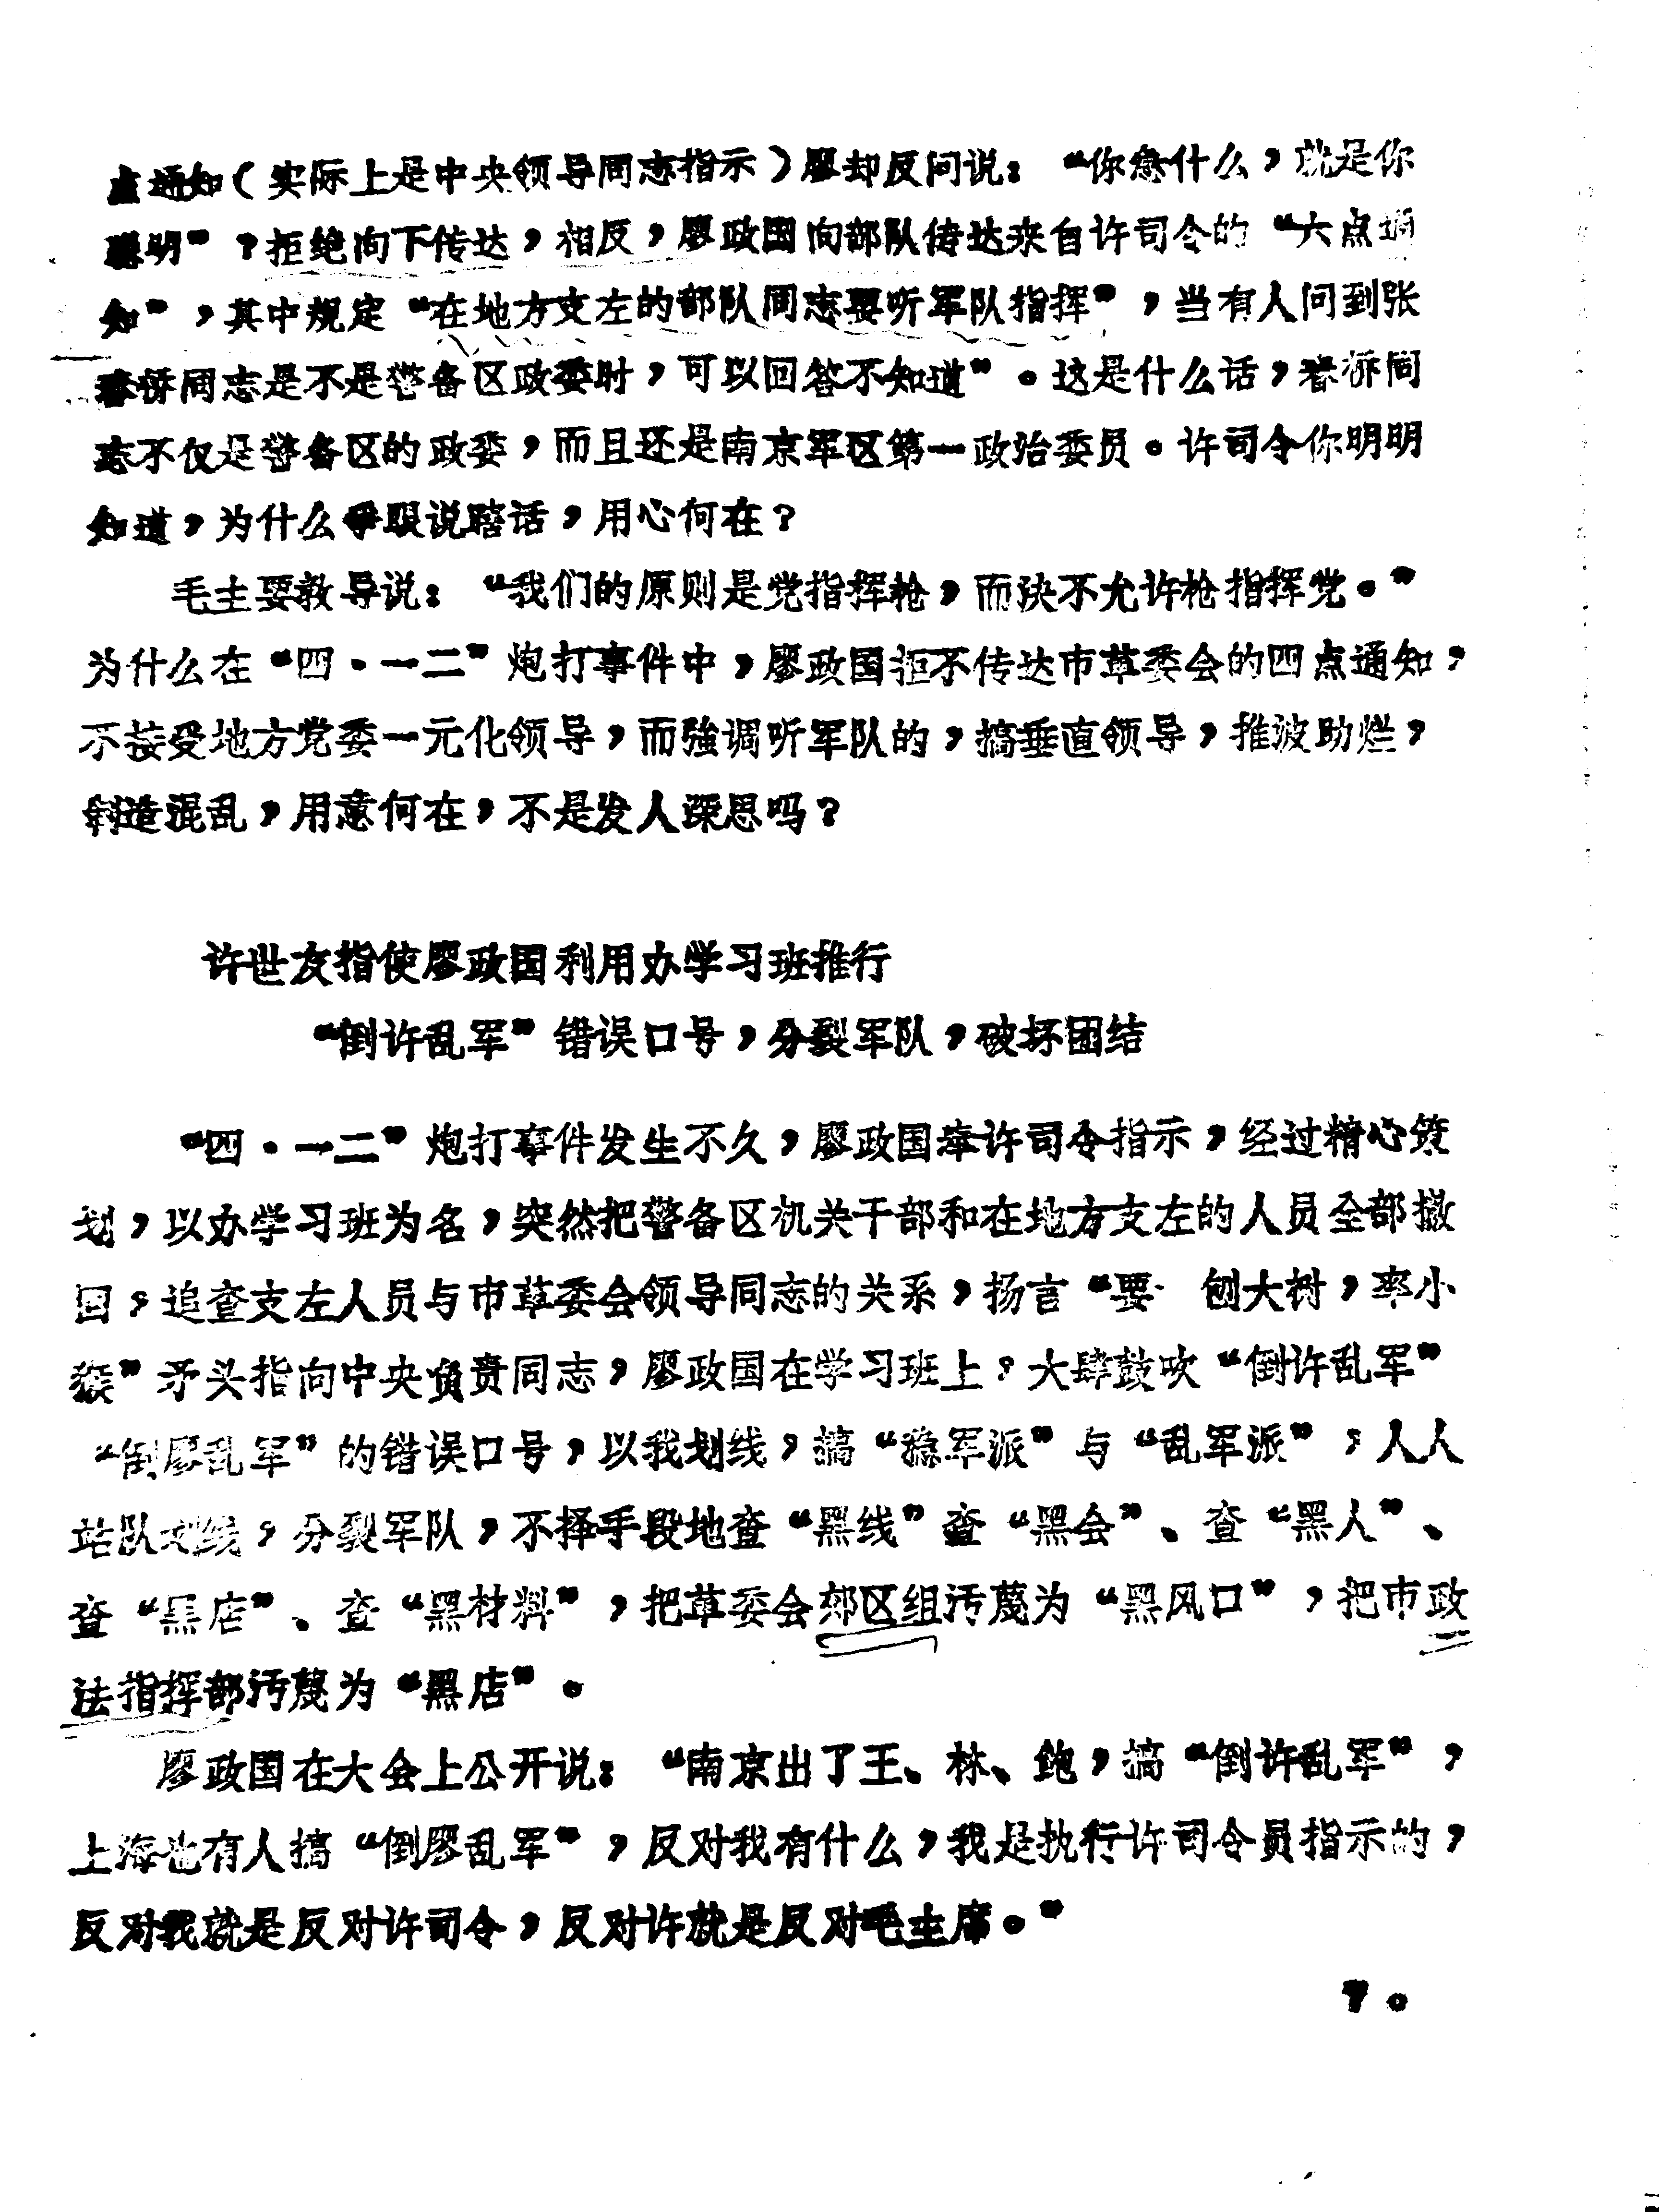 点通知（实际上是中央领导同志指示）廖却反问说：“你急什么，就是你
聪明”？拒绝向下传达，相反，廖政国向部队传达来自许司令的“六点通
知”，其中规定“在地方支左的部队同志要听军队指挥”，当有人问到张
春桥同志是不是警备区政委时，可以回答不知道”。这是什么话，春桥同
志不仅是警备区的政委，而且还是南京军区第一政治委员。许司令你明明
知道，为什么睁眼说瞎话，用心何在？
毛主要教导说：“我们的原则是党指挥枪，而决不允许枪指挥党。”
为什么在“四·一二”炮打事件中，廖政国拒不传达市草委会的四点通知，
不接受地方党委一元化领导，而強调听军队的，搞垂直领导，推波助烂，
制造混乱，用意何在，不是发人深思吗？
许世友指使廖政国利用办学习班推行
“倒许乱军”错误口号，分裂军队，破坏团结
“四·一二”炮打事件发生不久，廖政国奉许司令指示，经过精心策
划，以办学习班为名，突然把警备区机关干部和在地方支左的人员全部撤
回，追查支左人员与市草委会领导同志的关系，扬言“要 刨大树，牵小
猴”矛头指向中央负责同志，廖政国在学习班上，大肆鼓吹“倒许乱军”
“倒廖乱军”的错误口号，以我划线，搞“稳军派”与“乱军派”，人人
站队划线，分裂军队，不择手段地查“黑线”查“黑会”、查“黑人”、
查“黑店”、查“黑材料”，把草委会郊区组污蔑为“黑风口”，把市政
法指挥部污蔑为“黑店”。
廖政国在大会上公开说：“南京出了王、林、鲍，搞“倒许乱军”，
上海也有人搞“倒廖乱军”，反对我有什么，我是执行许司令员指示的，
反对我就是反对许司令，反对许就是反对毛主席。”
7。